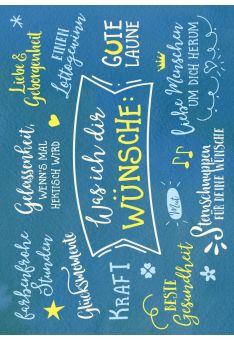 Liebe &
Geborgenheit
EINEN
Lottogewinn
GUTE
LAUNE
Gelassenheit,
WENN'S MAL
HEKTISCH WIRD
Was ich dir
WÜNSCHE:
Liebe Menschen
UM DICH HERUM
farbenfrohe
Stunden
Glücksmomente
KRAFT
BESTE
Gesundheit
Sternschnuppen
FÜR DEINE WÜNSCHE